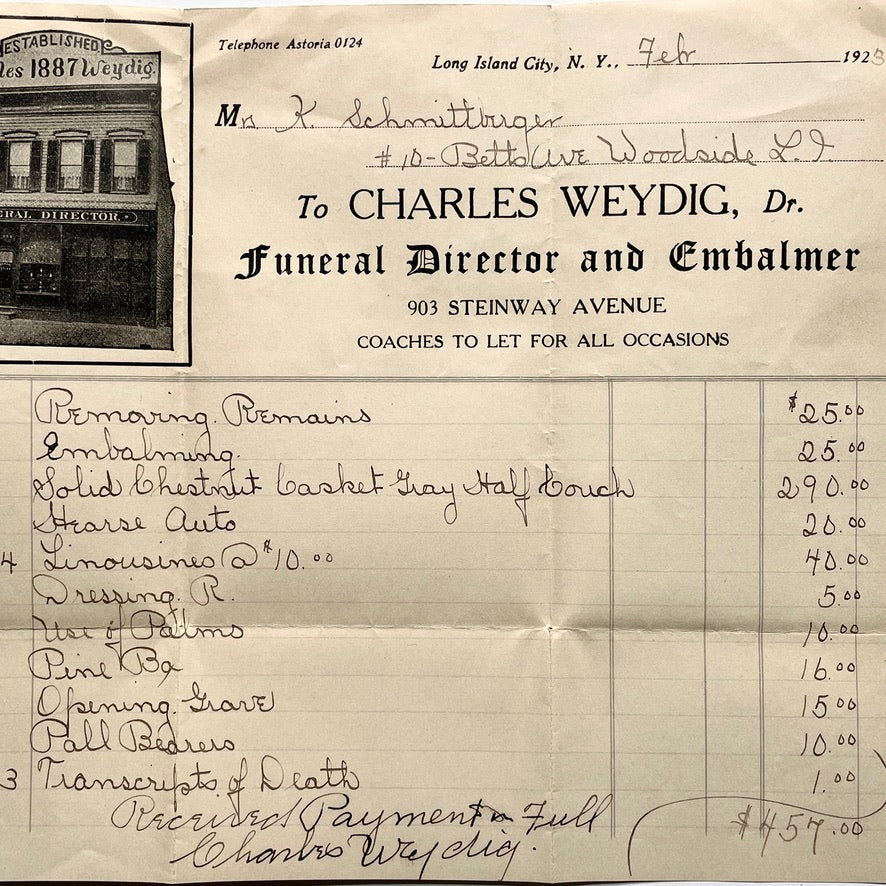 ESTABLISHED
les 1887 Weydig.
ERAL DIRECTOR.
Telephone Astoria 0124
Long Island City, N. Y., Feb 1923
Mrs K. Schmittberger
#10-Betts Ave Woodside L.I.
To CHARLES WEYDIG, Dr.
Funeral Director and Embalmer
903 STEINWAY AVENUE
COACHES TO LET FOR ALL OCCASIONS
Removing. Remains $25.00
Embalming. 25.00
Solid Chestnut Casket Gray Half Couch 290.00
Hearse Auto 20.00
4 Limousines @ $10.00 40.00
Dressing. R. 5.00
Use of Palms 10.00
Pine Bx 16.00
Opening. Grave 15.00
Pall Bearers 10.00
3 Transcripts of Death 1.00
Received Payment in Full $457.00
Charles Weydig.